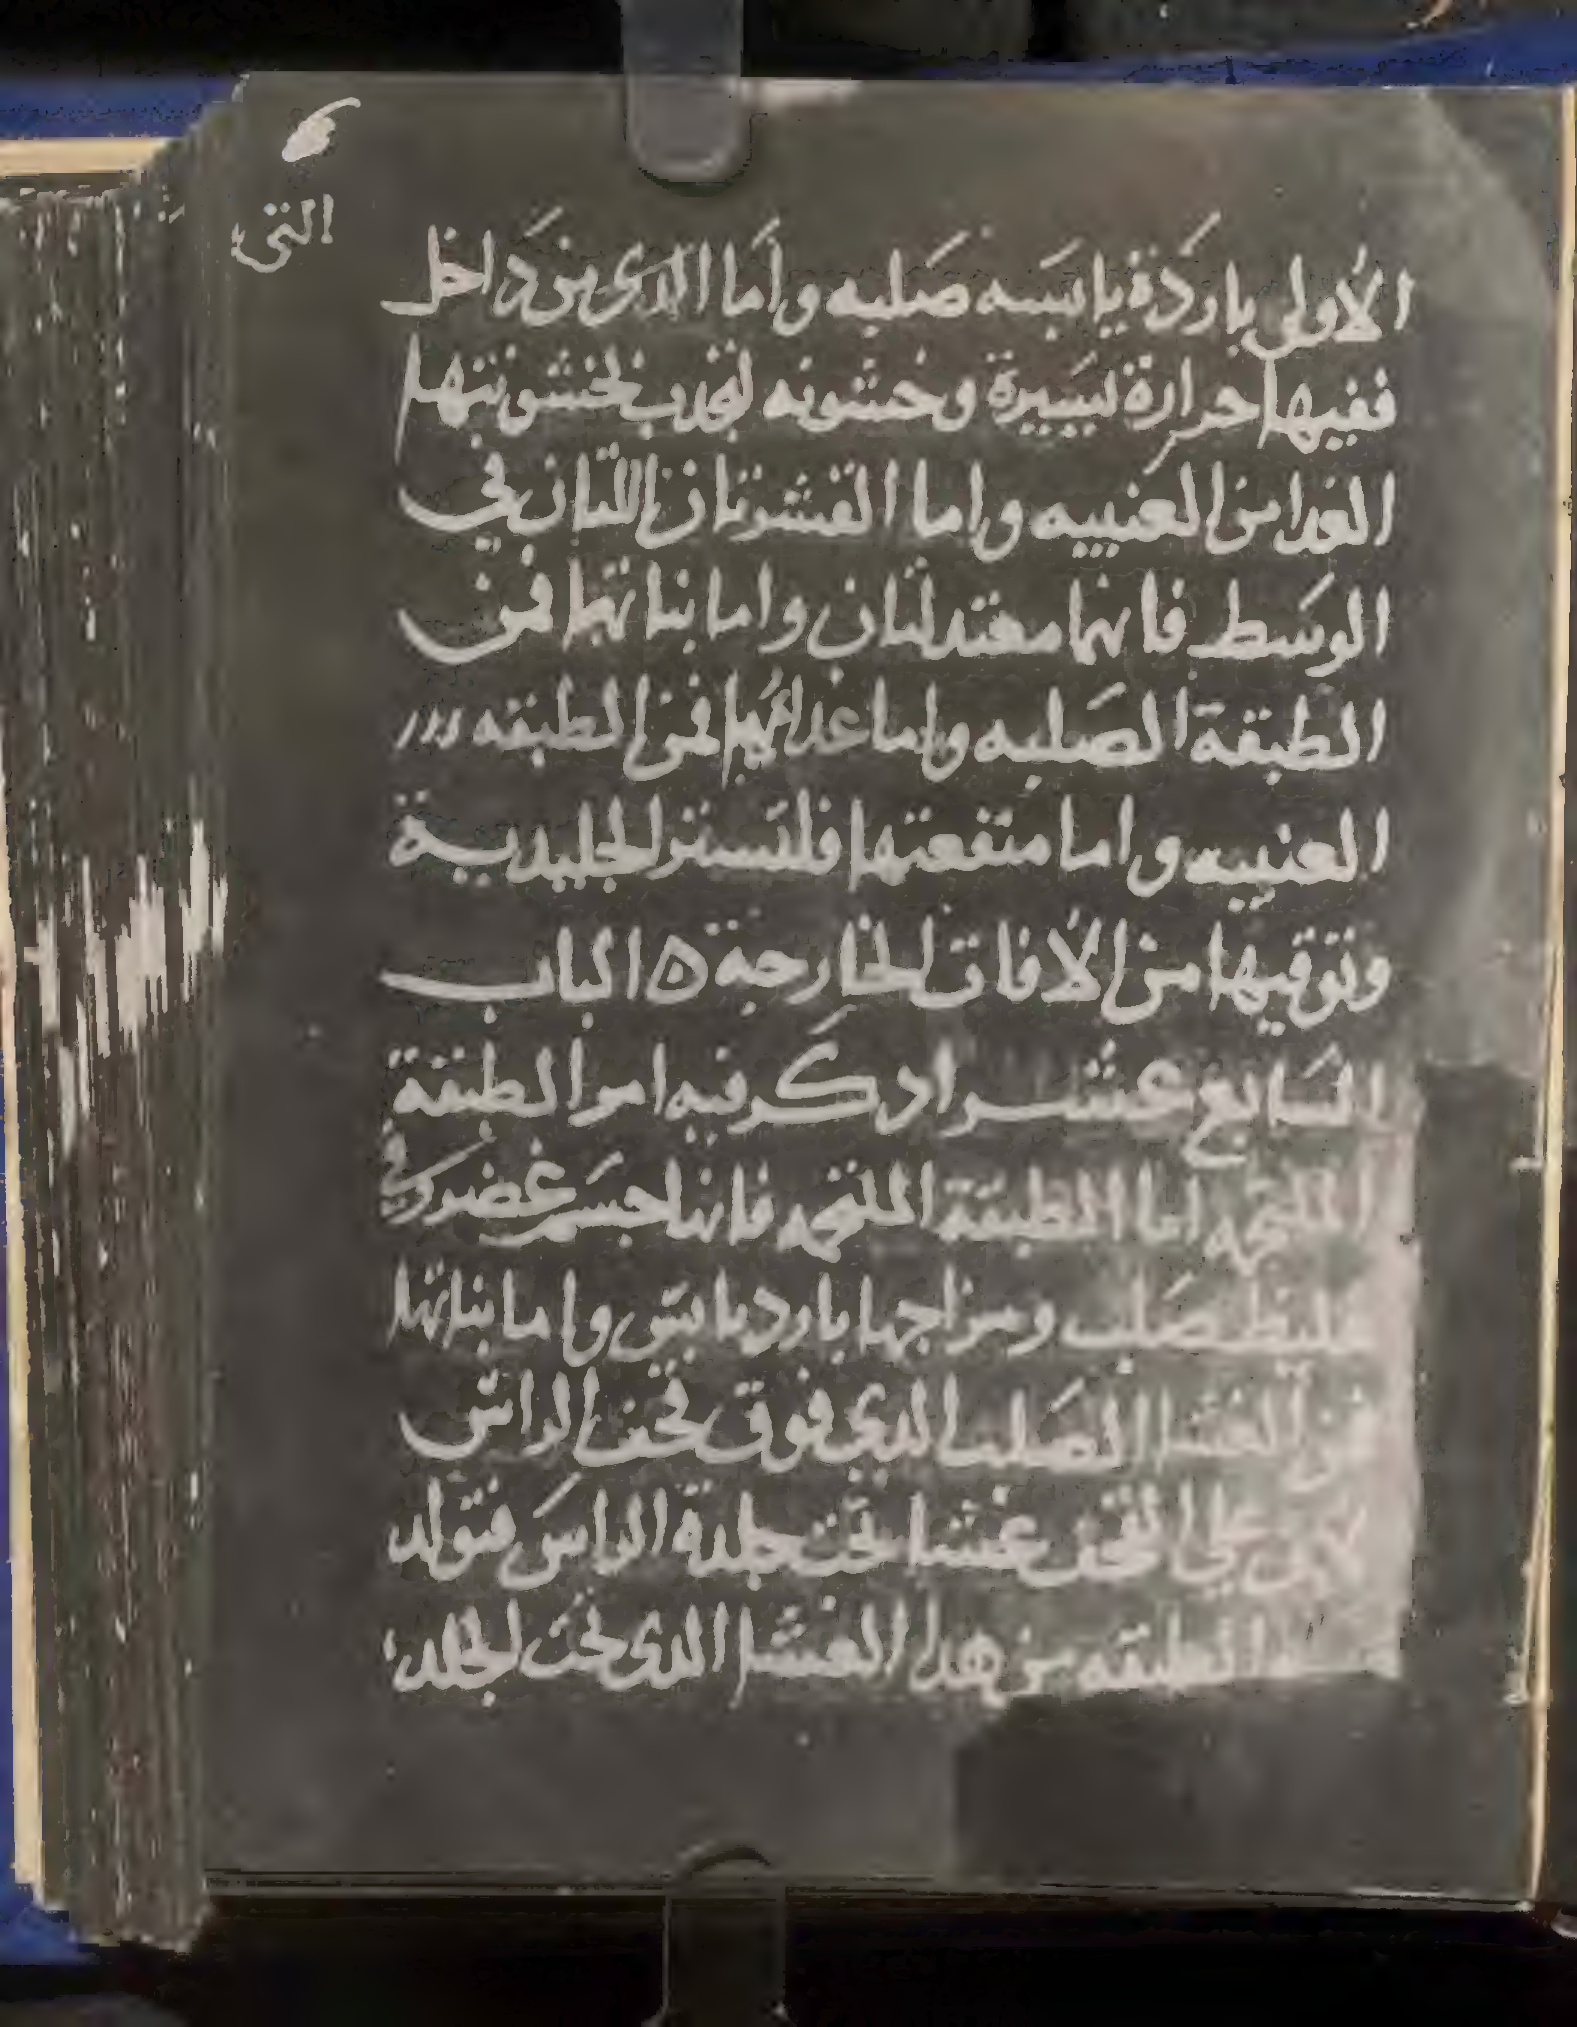 التى
الأولى باردة يابسه صلبه واما الدى من داخل
ففيها حرارة يسيرة وخشونه لتجدب بخشونتها
الغدا من العنبيه واما القشرتان اللتان في
الوسط فانهما معتدلتان واما نباتهما فمن
الطبقة الصلبه واما غدائهما فمن الطبقه
العنبيه واما منفعتها فلتستر الجليدية
وتوقيها من الأفات الخارجة ٥ الباب
السابع عشر ادكر فيه امر الطبقة
الملتحمه اما الطبقة الملتحمه فانها جسم غضروفي
غليظ صلب ومزاجها بارد يابس واما نباتها
فمن الغشا الصلب الدي فوق قحف الراس
لان على القحف غشا تحت جلدة الراس فتولد
الطبقه من هدا الغشا الدى تحت الجلد